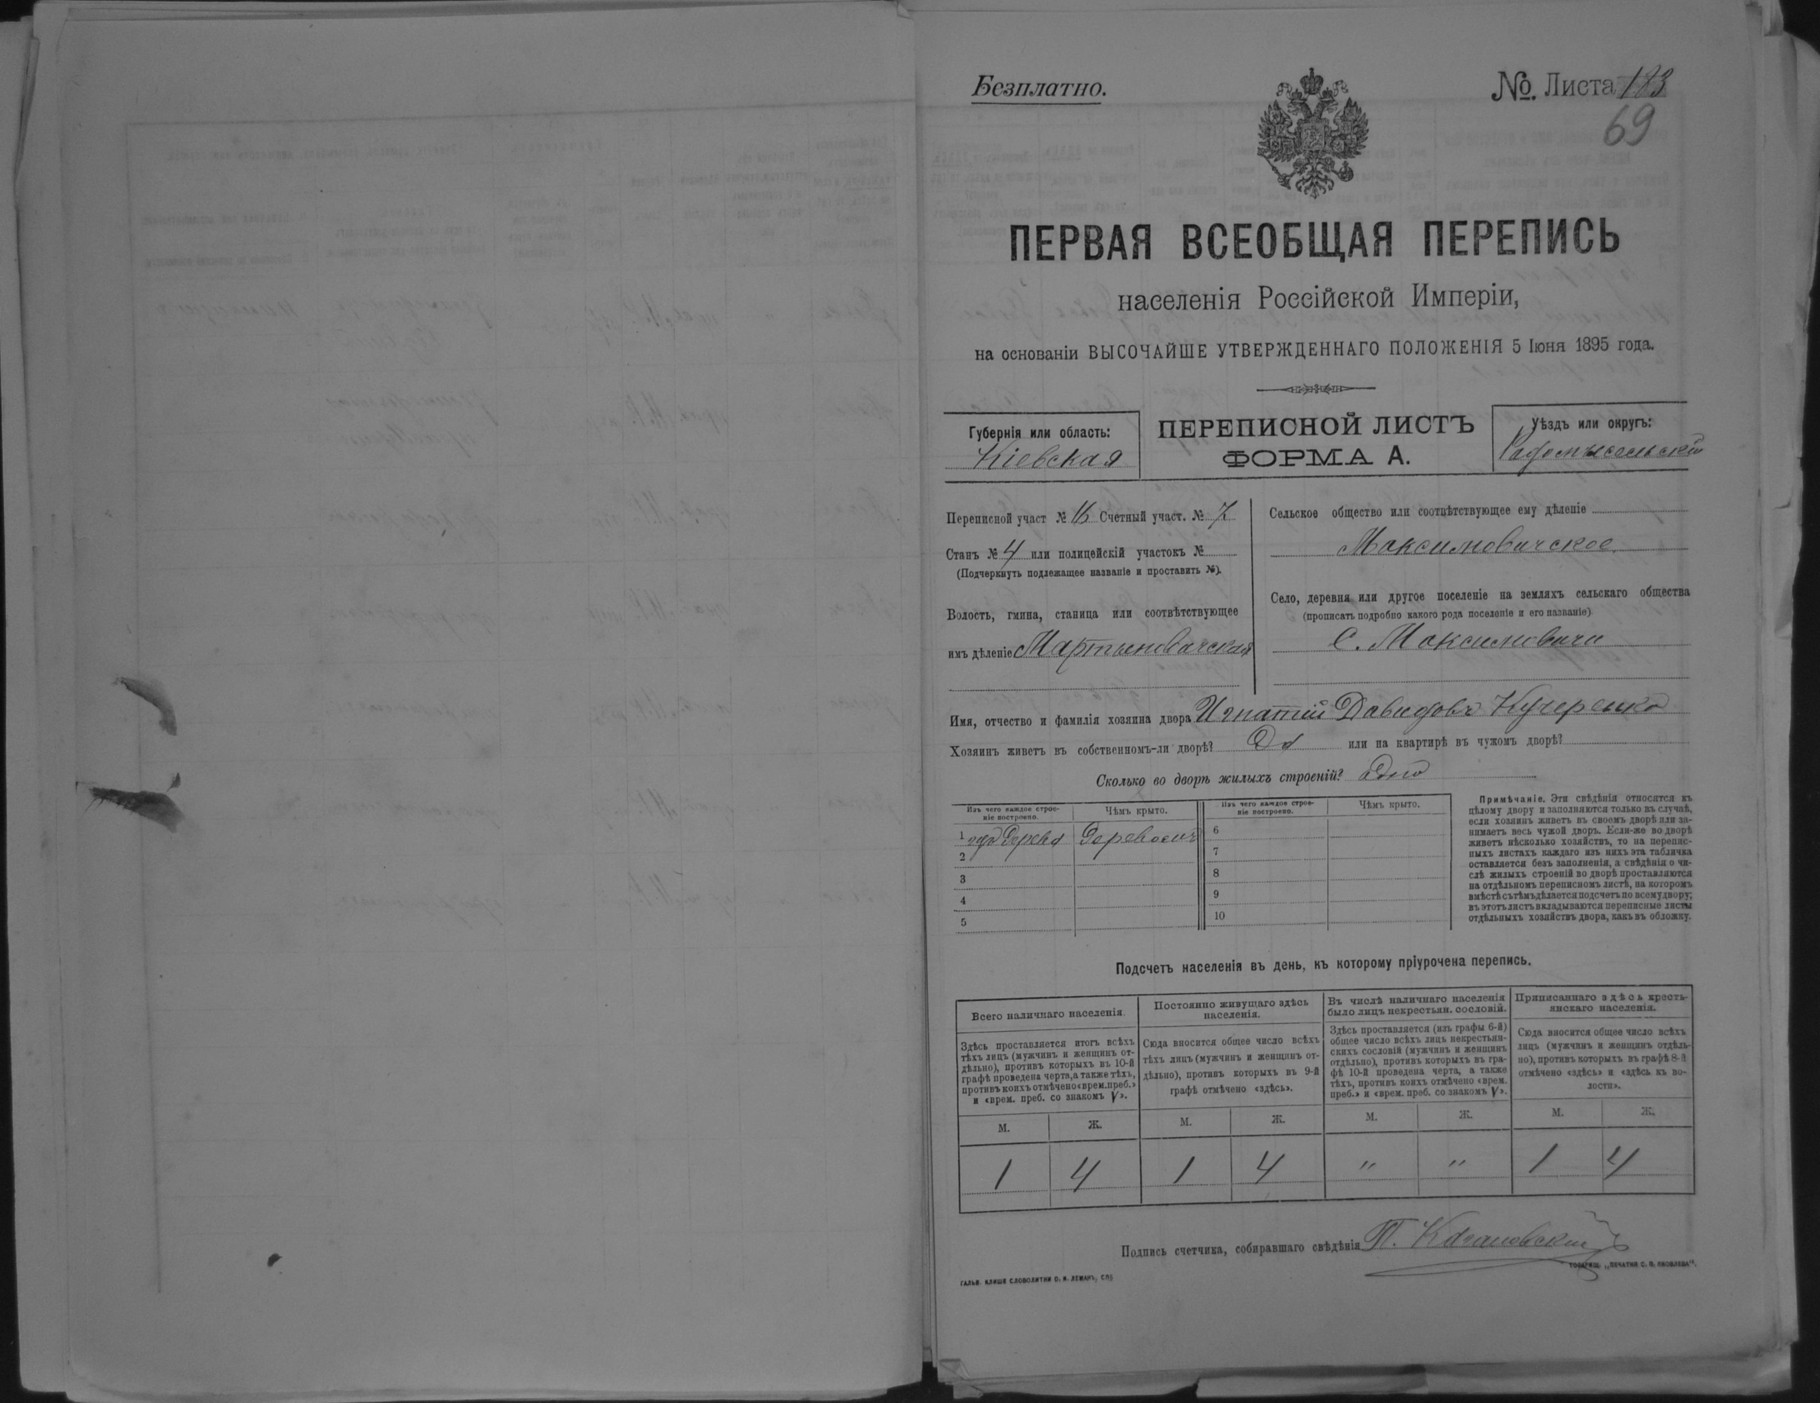 Безплатно.
№ Листа 183
69
ПЕРВАЯ ВСЕОБЩАЯ ПЕРЕПИСЬ
населенія Россійской Имперіи,
на основаніи ВЫСОЧАЙШЕ УТВЕРЖДЕННАГО ПОЛОЖЕНІЯ 5 Іюня 1895 года.
Губернія или область:
Кіевская
ПЕРЕПИСНОЙ ЛИСТЪ
ФОРМА А.
Уѣздъ или округъ:
Радомысельскій
Переписной участ № 16 Счетный участ. № 7
Станъ № 4 или полицейскій участокъ №
(Подчеркнуть подлежащее названіе и проставить №).
Волость, гмина, станица или соотвѣтствующее
имъ дѣленіе Мартыновичская
Сельское общество или соотвѣтствующее ему дѣленіе
Максимовичское
Село, деревня или другое поселеніе на земляхъ сельскаго общества
(прописать подробно какого рода поселеніе и его названіе)
С. Максимовичи
Имя, отчество и фамилія хозяина двора Игнатій Давидовъ Кучеренко
Хозяинъ живетъ въ собственномъ-ли дворѣ? Да или на квартирѣ въ чужомъ дворѣ?
Сколько во дворѣ жилыхъ строеній? Одно
Изъ чего каждое строе-
ніе построено.
Чѣмъ крыто.
1 изъ Дерева Деревомъ
2
3
4
5
Изъ чего каждое строе-
ніе построено.
Чѣмъ крыто.
6
7
8
9
10
Примѣчаніе. Эти свѣдѣнія относятся къ
цѣлому двору и заполняются только въ случаѣ,
если хозяинъ живетъ въ своемъ дворѣ или за-
нимаетъ весь чужой дворъ. Если-же во дворѣ
живетъ нѣсколько хозяйствъ, то на перепис-
ныхъ листахъ каждаго изъ нихъ эта табличка
оставляется безъ заполненія, а свѣдѣнія о чи-
слѣ жилыхъ строеній во дворѣ проставляются
на отдѣльномъ переписномъ листѣ, на которомъ
вмѣстѣ съ тѣмъ дѣлается подсчетъ по всему двору;
въ этотъ листъ вкладываются переписные листы
отдѣльныхъ хозяйствъ двора, какъ въ обложку.
Подсчетъ населенія въ день, къ которому пріурочена перепись.
Всего наличнаго населенія.
Здѣсь проставляется итогъ всѣхъ
тѣхъ лицъ (мужчинъ и женщинъ от-
дѣльно), противъ которыхъ въ 10-й
графѣ проведена черта, а также тѣхъ,
противъ коихъ отмѣчено «врем. преб.»
и «врем. преб. со знакомъ V».
М. Ж.
1 4
Постоянно живущаго здѣсь
населенія.
Сюда вносится общее число всѣхъ
тѣхъ лицъ (мужчинъ и женщинъ от-
дѣльно), противъ которыхъ въ 9-й
графѣ отмѣчено «здѣсь».
М. Ж.
1 4
Въ числѣ наличнаго населенія
было лицъ некрестьян. сословій.
Здѣсь проставляется (изъ графы 6-й)
общее число всѣхъ лицъ некрестьян-
скихъ сословій (мужчинъ и женщинъ
отдѣльно), противъ которыхъ въ гра-
фѣ 10-й проведена черта, а также
тѣхъ, противъ коихъ отмѣчено «врем.
преб.» и «врем. преб. со знакомъ V».
М. Ж.
" "
Приписаннаго здѣсь кресть-
янскаго населенія.
Сюда вносится общее число всѣхъ
лицъ (мужчинъ и женщинъ отдѣль-
но), противъ которыхъ въ графѣ 8-й
отмѣчено «здѣсь» и «здѣсь къ во-
лости».
М. Ж.
1 4
Подпись счетчика, собиравшаго свѣдѣнія П. Качановскій
ГАЛЬВ. КЛИШЕ СЛОВОЛИТНИ О. И. ЛЕМАНЪ, СПБ
ТОВАРИЩ. „ПЕЧАТНЯ С. П. ЯКОВЛЕВА".